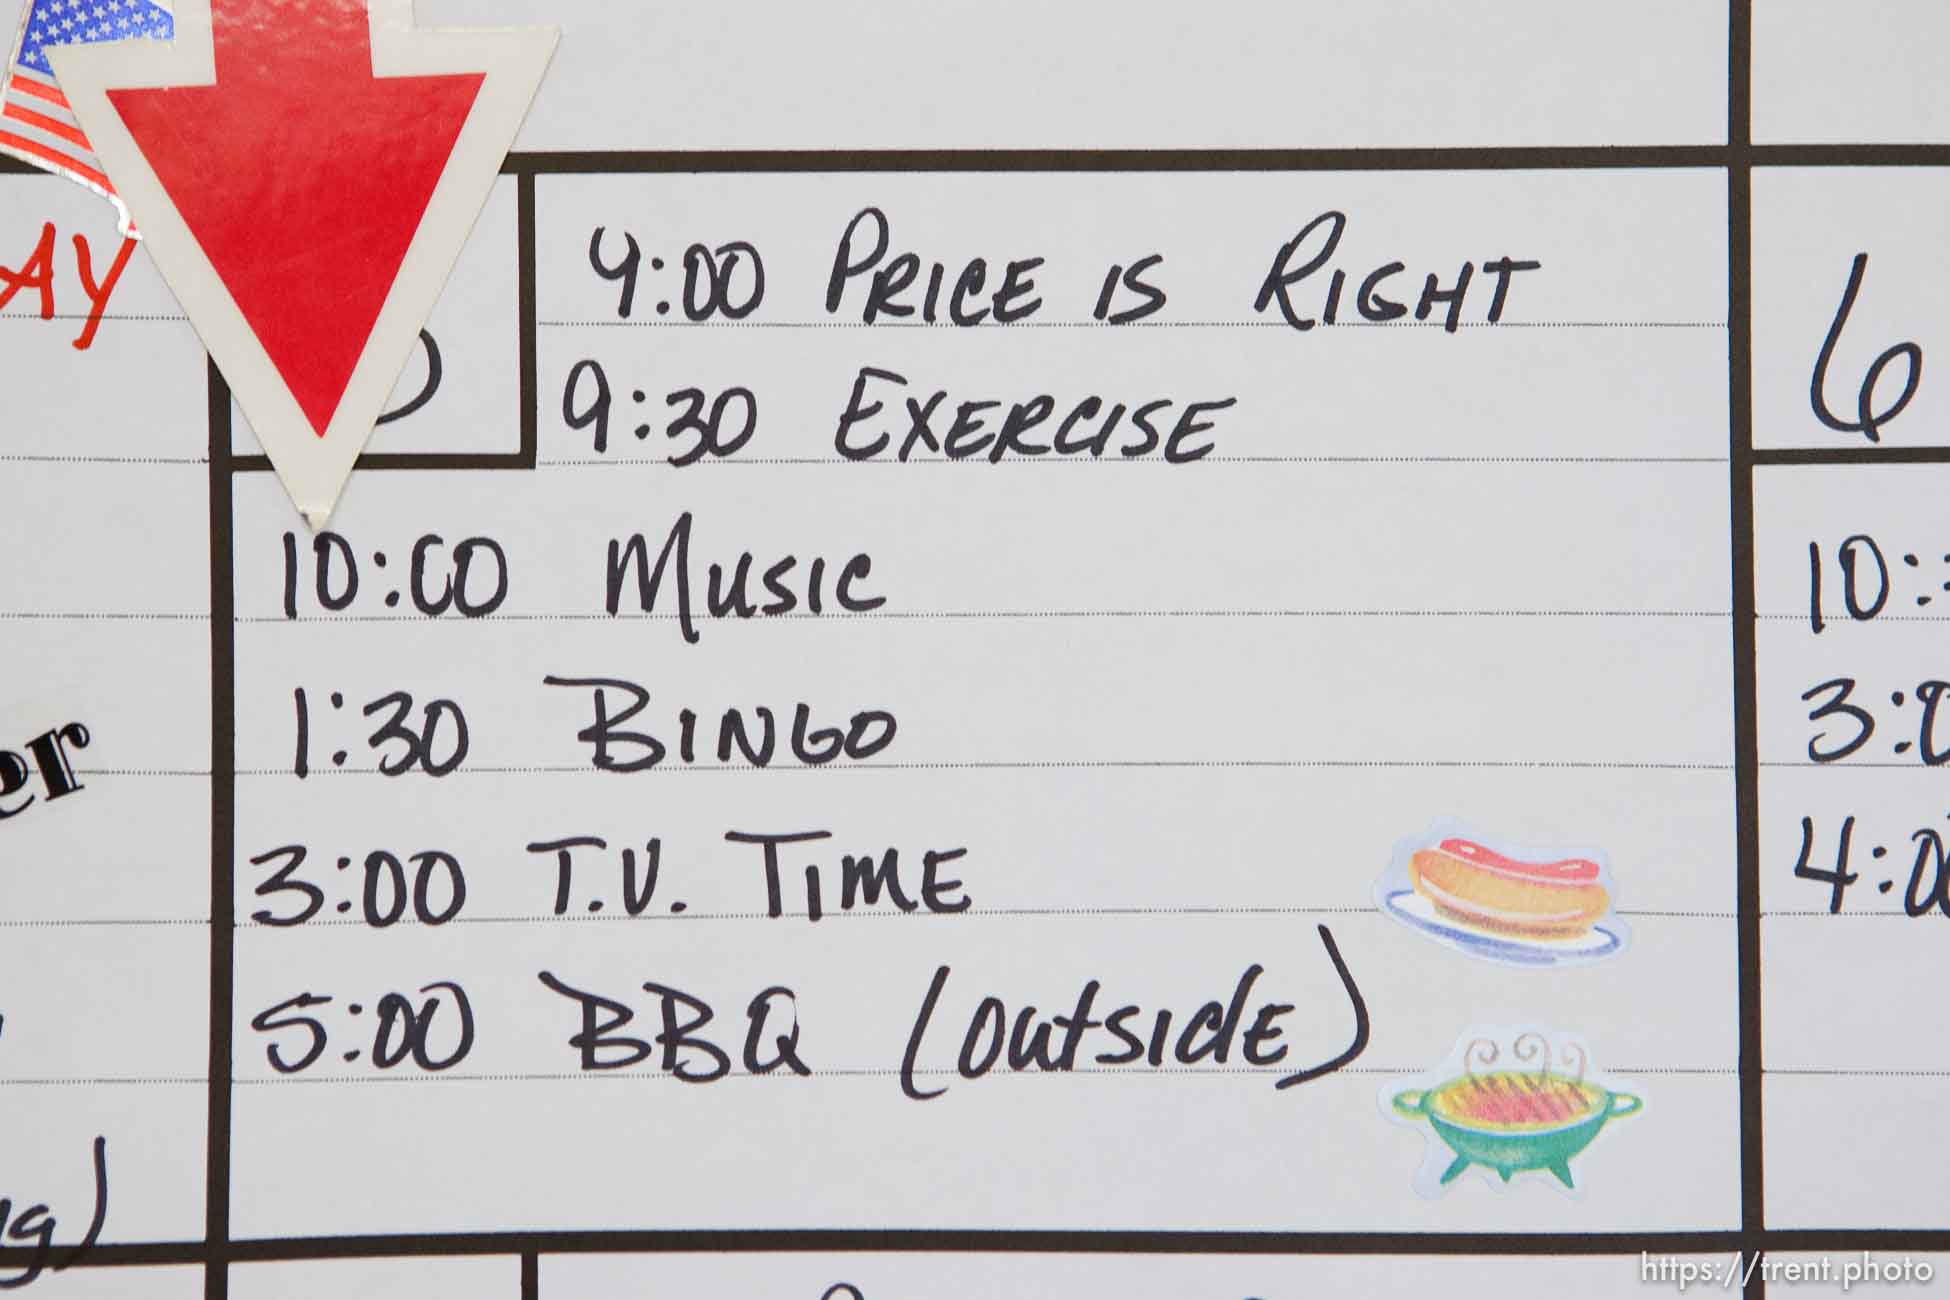 AY
9:00 PRICE IS RIGHT
9:30 EXERCISE
10:00 MUSIC
1:30 BINGO
3:00 T.V. TIME
5:00 BBQ (OUTSIDE)
6
10:
3:0
4:00
er
g)
https://trent.photo